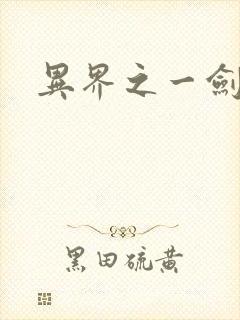 異界之一劍
黑田硫黃